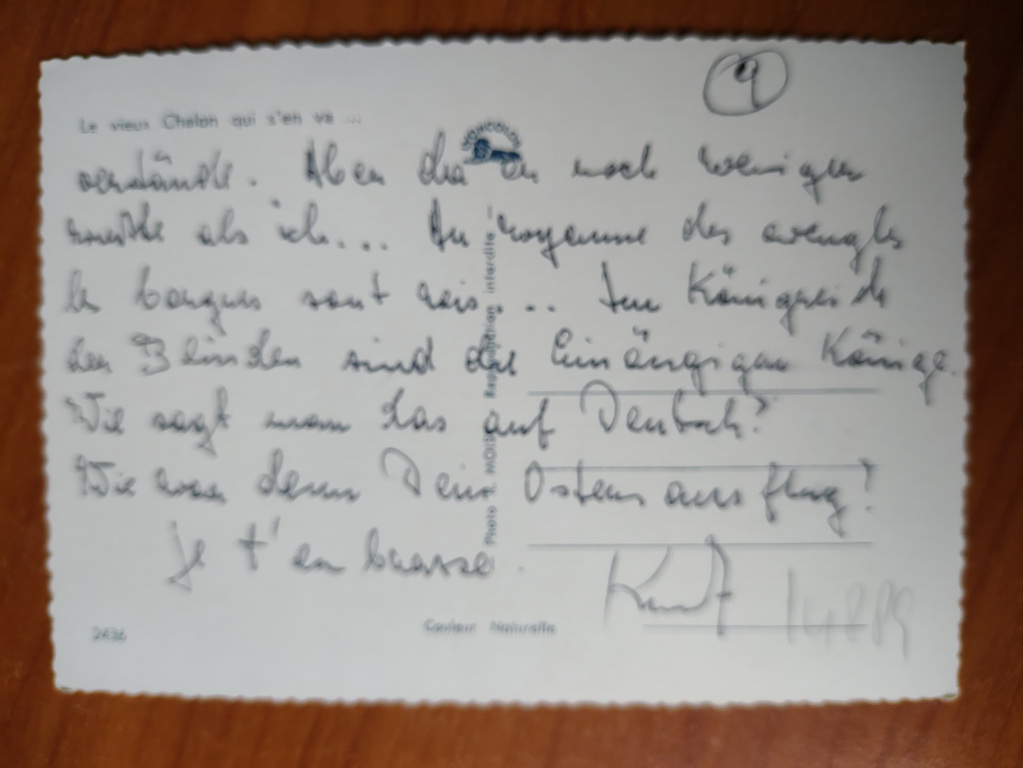 9
Le vieux Chalon qui s'en va ...
COMBIER
verstände. Aber da er noch weniger
wußte als ich... Au royaume des aveugles
les borgnes sont rois... Im Königreich
der Blinden sind die Einäugigen Könige.
Wie sagt man das auf Deutsch?
Wie war denn Dein Osterausflug?
Je t'embrasse.
Photo Reproduction interdite
2436
Couleur Naturelle